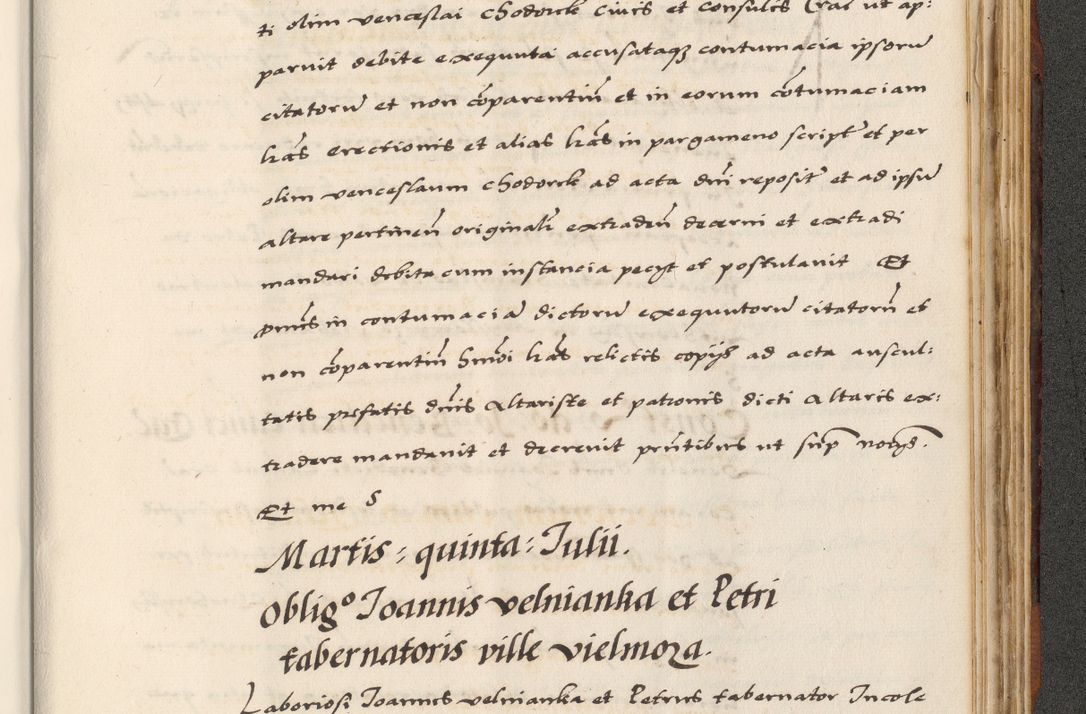 ti olim venceslai chodorek civis et consulis Crac ut ap:
paruit debite exequuta accusataqȝ contumacia ipsorũ
citatorũ et non cõparentiũ et in eorum cõtumaciam
lrãs erectionis et alias lrãs in pargameno script et per
olim venceslaum chodorek ad acta dñi reposit et ad ipsũ
altare pertineñ original extradeñ decerni et extradi
mandari debita cum instancia pecyt et postulavit Et
dñus in contumaciã dictorũ exequutorũ citatorũ et
non cõparentiũ hmõi lrãs relictis copijs ad acta auscul:
tatis prefatis dñis Altariste et patronis dicti Altaris ex:
tradere mandavit et decrevit pñtibus ut sup notijs.
Et me S
Martis : quinta : Iulii.
Obligº Ioannis velnianka et Petri
tabernatoris ville vielmoza.
Laboriosi Ioannes velnianka et Petrus tabernator Incole